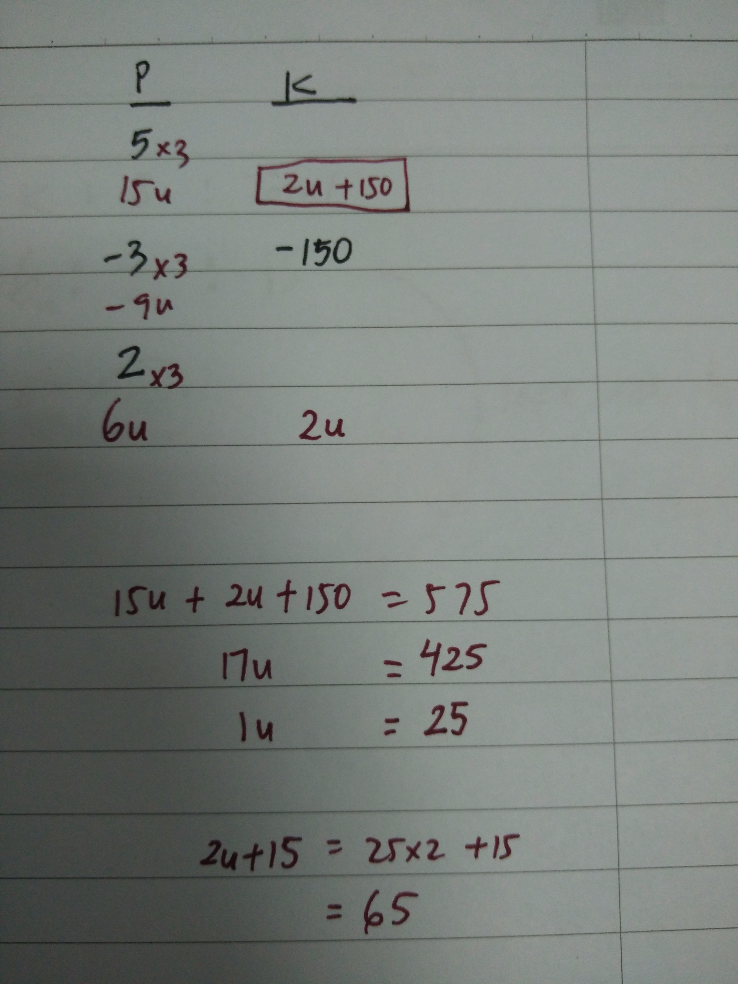 P K
5 x3
15u 2u + 150
-3 x3 -150
-9u
2 x3
6u 2u
15u + 2u + 150 = 575
17u = 425
1u = 25
2u+15 = 25x2 +15
= 65